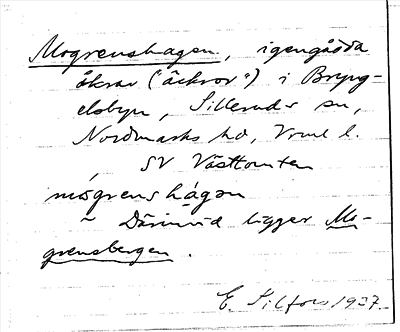 Mogrenshagen, igengådda
åkrar ("äckror") i Bryng-
elsbyn, Silleruds sn,
Nordmarks hd, Vrml l.
SV Västtomten
mógrenshágən
~ Därinvid ligger Mo-
grensbergen.
E. Silfors 1937.